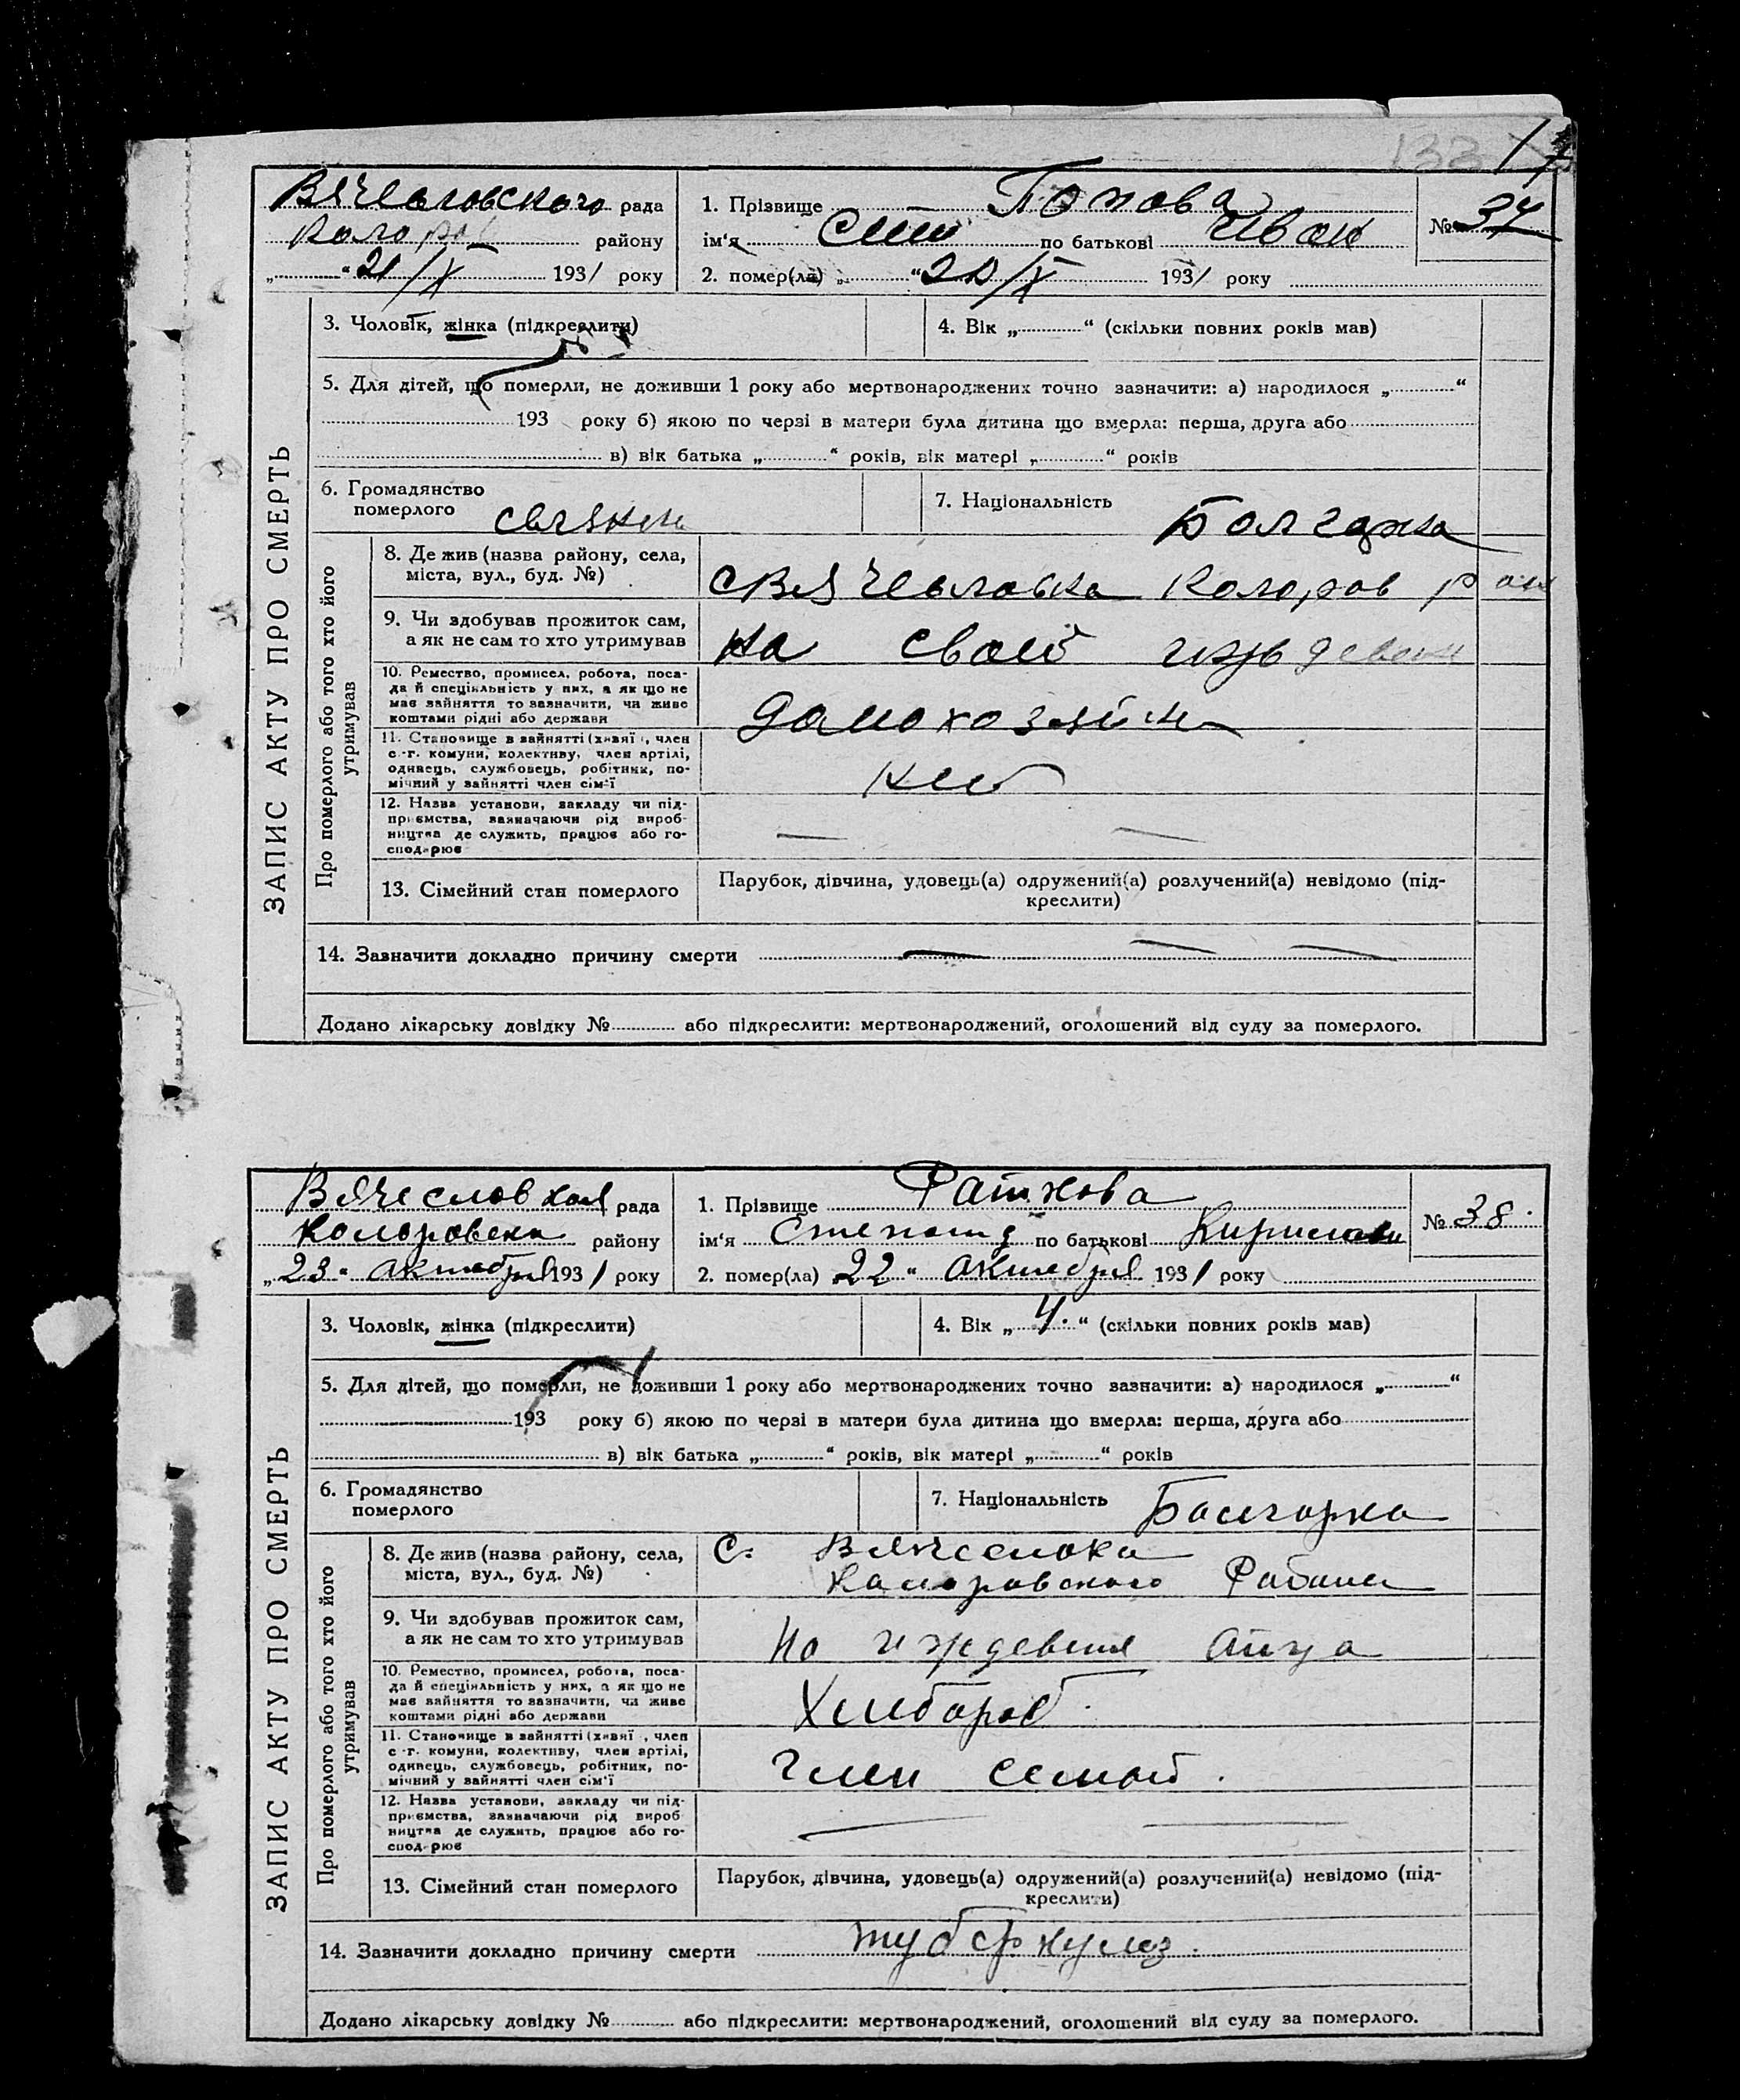 133 17
Вячесловского рада
Колоров району
„ “ 21/X 1931 року
1. Прізвище Попова
ім'я по батькові Иван
2. помер(ла) „ “ 20/X 1931 року
№ 37
ЗАПИС АКТУ ПРО СМЕРТЬ
3. Чоловік, жінка (підкреслити)
4. Вік „ “ (скільки повних років мав)
5. Для дітей, що померли, не доживши 1 року або мертвонароджених точно зазначити: а) народилося „ “
193 року б) якою по черзі в матери була дитина що вмерла: перша, друга або
в) вік батька „ “ років, вік матері „ “ років
6. Громадянство
померлого
7. Національність Болгарка
Про померлого або того хто його
утримував
8. Де жив (назва району, села,
міста, вул., буд. №)
с Вячесловка Колоров район
9. Чи здобував прожиток сам,
а як не сам то хто утримував
на своей иждевен
10. Ремество, промисел, робота, поса-
да й спеціяльність у них, а як що не
має зайняття то зазначити, чи живе
коштами рідні або держави
домохозяйка
11. Становище в зайнятті (хазяї , член
с.-г. комуни, колективу, член артілі,
одинець, службовець, робітник, по-
мічний у зайнятті член сім'ї
12. Назва установи, закладу чи під-
приємства, зазначаючи рід вироб-
ництва де служить, працює або го-
сподарює
— —
13. Сімейний стан померлого
Парубок, дівчина, удовець(а) одружений(а) розлучений(а) невідомо (під-
креслити)
14. Зазначити докладно причину смерти — — —
Додано лікарську довідку № або підкреслити: мертвонароджений, оголошений від суду за померлого.
Вячесловская рада
Колоровски району
„23“ октября 1931 року
1. Прізвище Раткова
ім'я Степанида по батькові Кириловн
2. помер(ла) 22 “ октября 1931 року
№ 38.
ЗАПИС АКТУ ПРО СМЕРТЬ
3. Чоловік, жінка (підкреслити)
4. Вік „ 4. “ (скільки повних років мав)
5. Для дітей, що померли, не доживши 1 року або мертвонароджених точно зазначити: а) народилося „ “
193 року б) якою по черзі в матери була дитина що вмерла: перша, друга або
в) вік батька „ “ років, вік матері „ “ років
6. Громадянство
померлого
7. Національність Болгарка
Про померлого або того хто його
утримував
8. Де жив (назва району, села,
міста, вул., буд. №)
С. Вячесловка
Колоровского Района
9. Чи здобував прожиток сам,
а як не сам то хто утримував
На иждевения отца
10. Ремество, промисел, робота, поса-
да й спеціяльність у них, а як що не
має зайняття то зазначити, чи живе
коштами рідні або держави
Хлебороб.
11. Становище в зайнятті (хазяї , член
с.-г. комуни, колективу, член артілі,
одинець, службовець, робітник, по-
мічний у зайнятті член сім'ї
член семьи.
12. Назва установи, закладу чи під-
приємства, зазначаючи рід вироб-
ництва де служить, працює або го-
сподарює
— —
13. Сімейний стан померлого
Парубок, дівчина, удовець(а) одружений(а) розлучений(а) невідомо (під-
креслити)
14. Зазначити докладно причину смерти туберкулоз.
Додано лікарську довідку № або підкреслити: мертвонароджений, оголошений від суду за померлого.